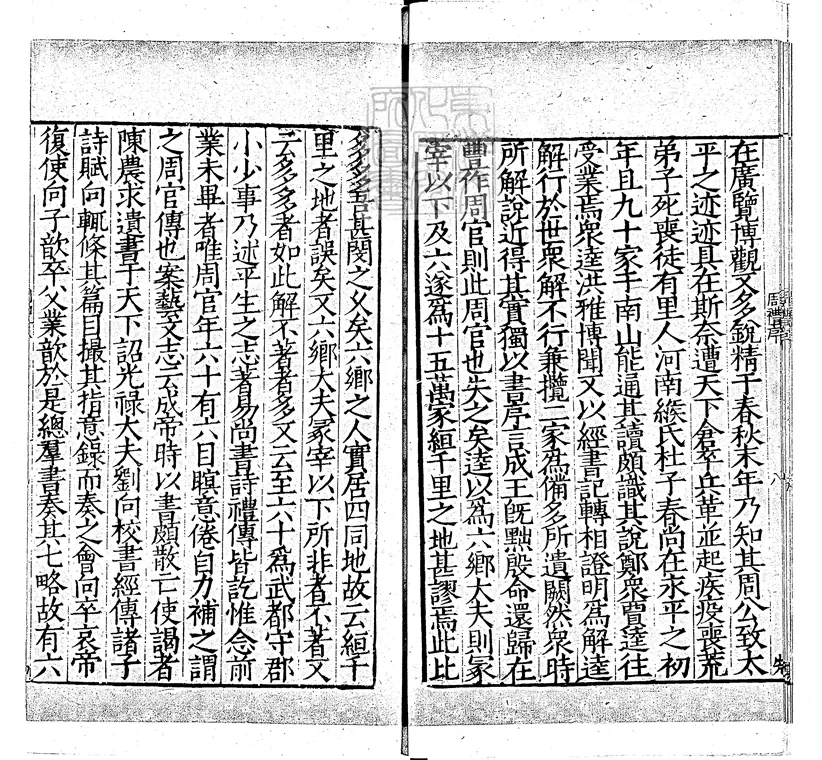 在廣覽博觀又多銳精于春秋末年乃知其周公致太
平之迹迹具在斯奈遭天下倉卒兵革並起疾疫喪荒
弟子死喪徒有里人河南緱氏杜子春尚在永平之初
年且九十家于南山能通其讀頗識其說鄭衆賈逵往
受業焉衆逵洪雅博聞又以經書記轉相證明為解逵
解行於世衆解不行兼攬二家為備多所遺闕然衆時
所解說近得其實獨以書序言成王旣黜殷命還歸在
豐作周官則此周官也失之矣逵以為六鄉大夫則冢
宰以下及六遂為十五萬家絙千里之地甚謬焉此比
多多吾甚閔之久矣六鄉之人實居四同地故云絙千
里之地者誤矣又六鄉大夫冢宰以下所非者不著又
云多多者如此解不著者多又云至六十為武都守郡
小少事乃述平生之志著易尚書詩禮傳皆訖惟念前
業未畢者唯周官年六十有六目瞑意倦自力補之謂
之周官傳也案藝文志云成帝時以書頗散亡使謁者
陳農求遺書于天下詔光祿大夫劉向校書經傳諸子
詩賦向輒條其篇目撮其指意錄而奏之會向卒哀帝
復使向子歆卒父業歆於是總羣書奏其七略故有六